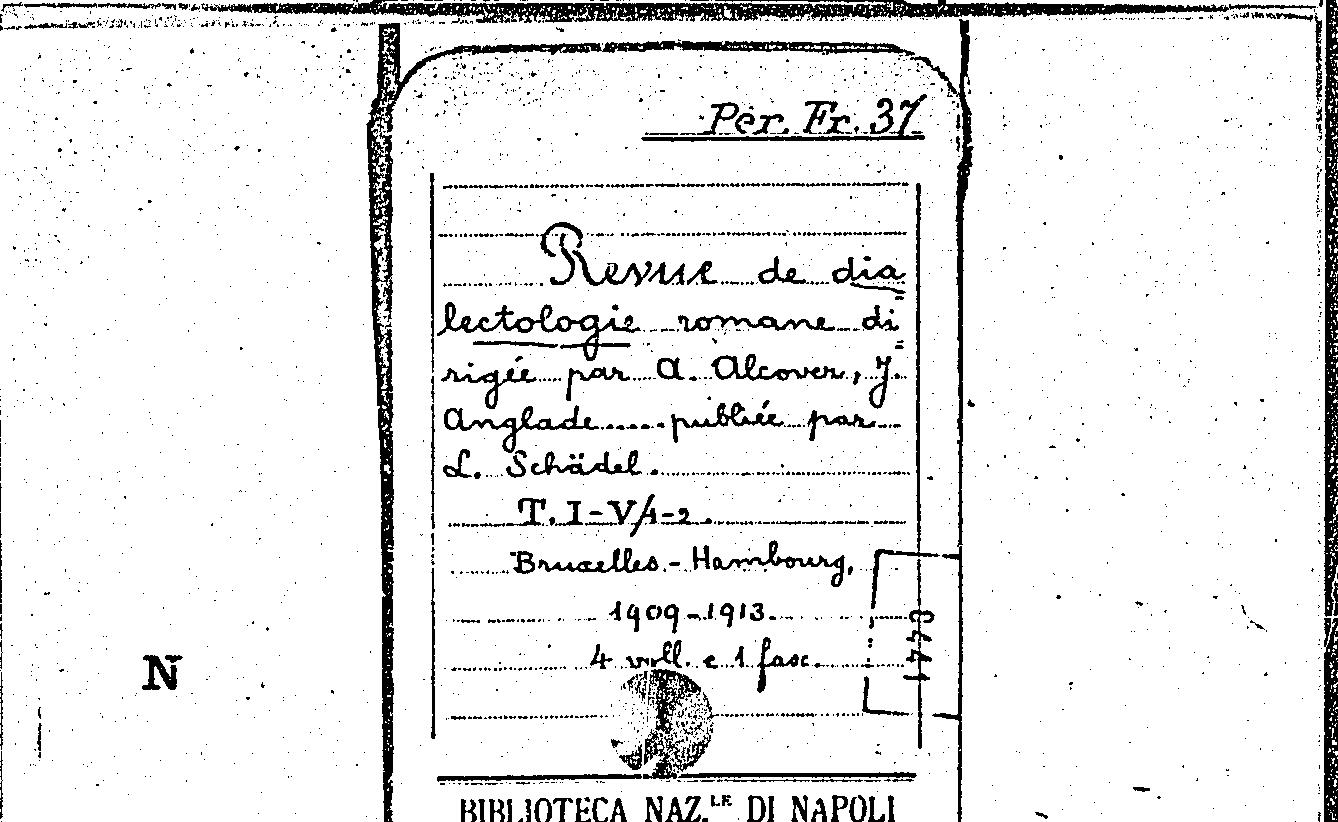 Per. Fr. 37
Revue de dia
lectologie romane di=
rigée par A. Alcover, J.
Anglade..... publiée par
L. Schädel.
T. I-V/1-2.
Bruxelles.- Hambourg,
1909-1913.
4 voll. e 1 fasc.
N
BIBLIOTECA NAZ.LE DI NAPOLI